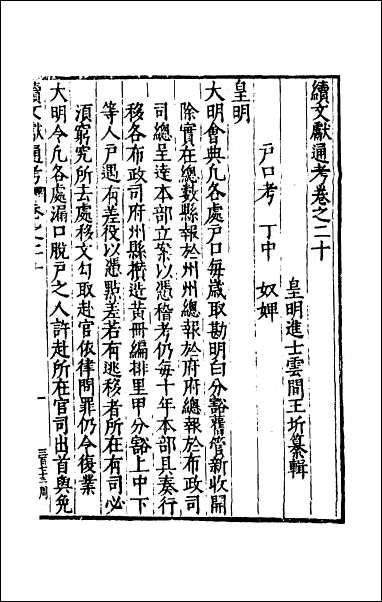 續文獻通考卷之二十
皇明進士雲間王圻纂輯
戶口考 丁中 奴婢
皇明
大明會典凡各處戶口每歲取勘明白分豁舊管新收開
除實在總數縣報於州州總報於府府總報於布政司
司總呈達本部立案以憑稽考仍每十年本部具奏行
移各布政司府州縣攢造黃冊編排里甲分豁上中下
等人戶遇有差役以憑點差若有逃移者所在有司必
須窮究所去處移文勾取赴官依律問罪仍令復業
大明令凡各處漏口脫戶之人許赴所在官司出首與免
續文獻通考 卷之二十 一